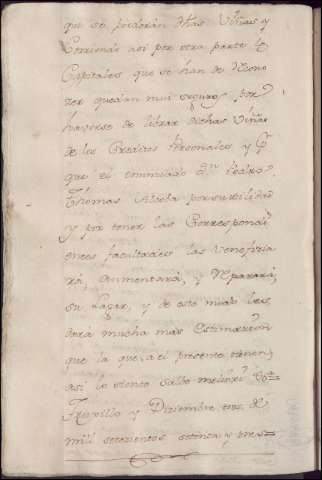 que se perderán dhas Viñas y
Corrinas asi por otra parte los
Capitales que se han de Recono
zer quedan mui seguros por
haverse de librar dichas Viñas
de los Creditos Personales y
que el enunciado Dn. Pedro
Thomas Alcela por su utilidad
y por tener las Correspondi
entes facultades las Venefizia
rá, Aumentará, y Reparará,
su Lagar, y de este modo les
dará mucha mas Estimacion
que la que a el presente tienen,
asi lo siento salvo meliori &a
Truxillo y Diziembre tres de
mil setecientos setenta y tres